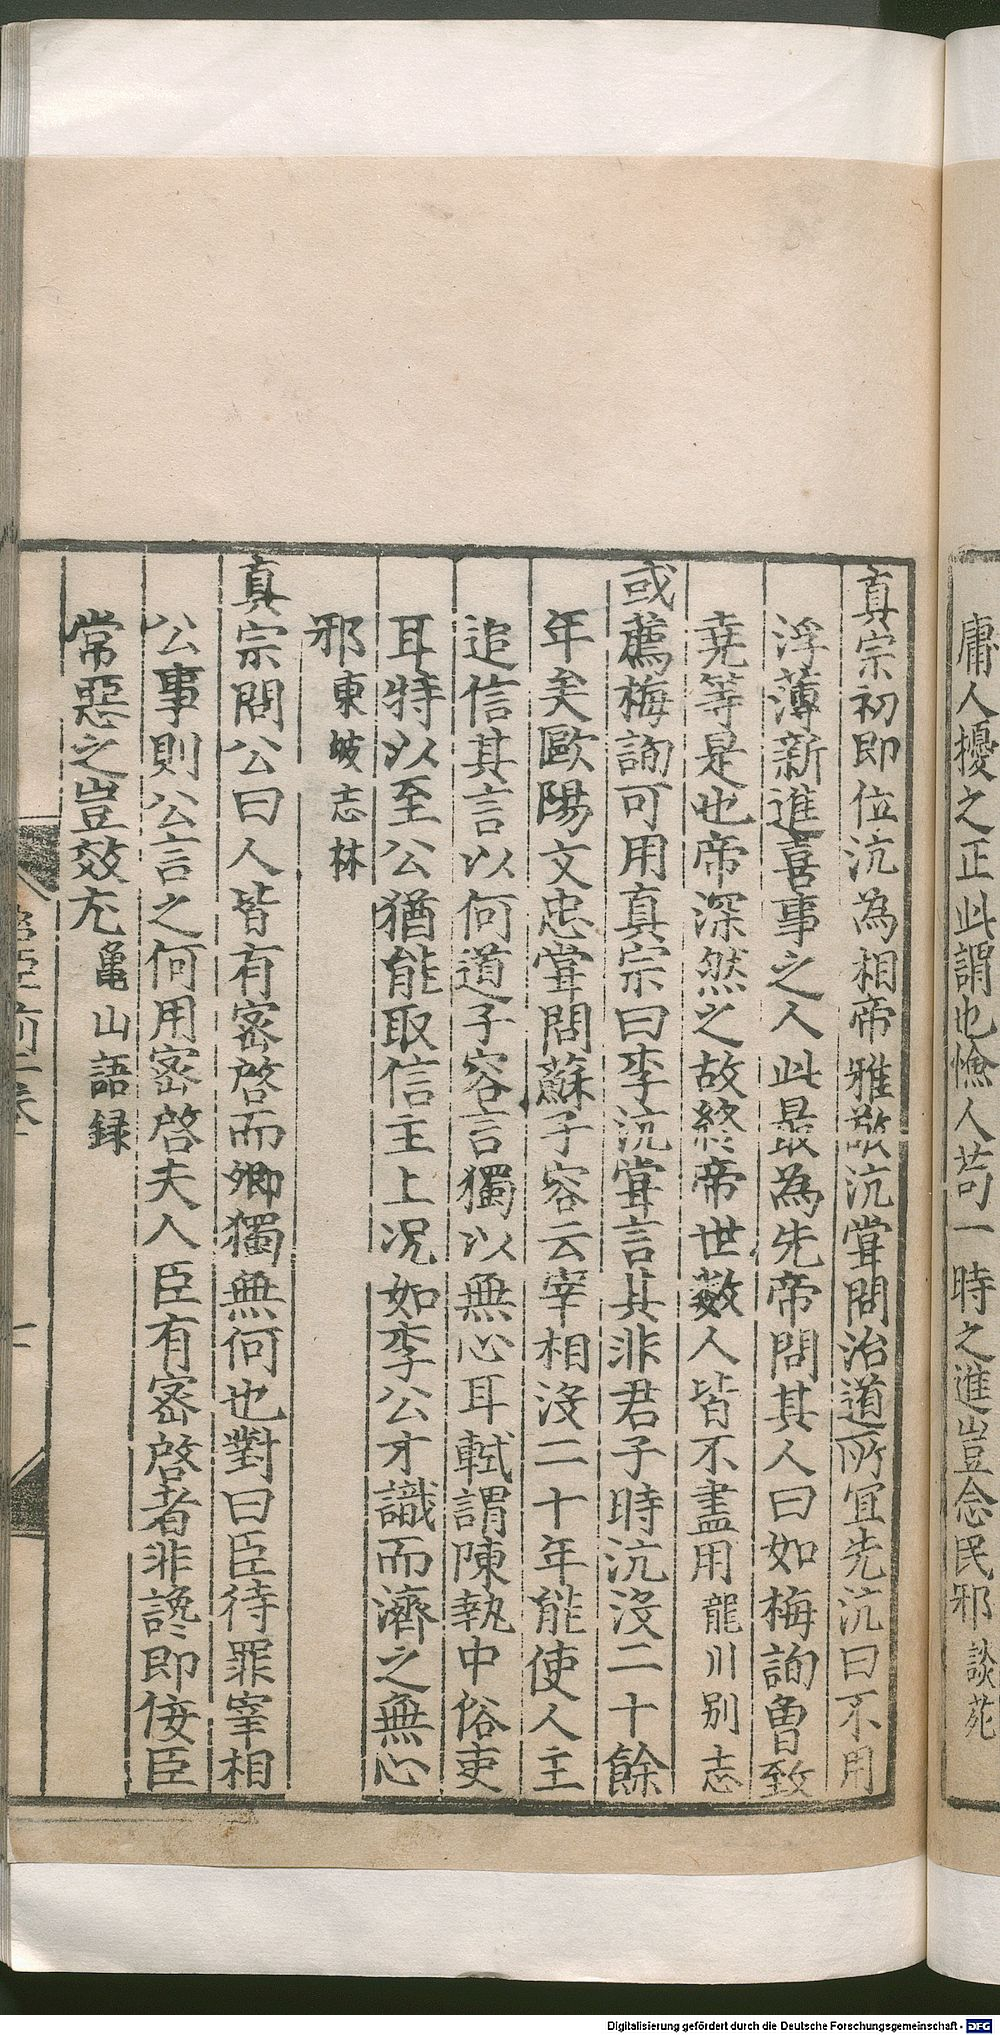 庸人擾之正此謂也憸人苟一時之進豈念民邪談苑
真宗初即位沆為相帝雅敬沆甞問治道所宜先沆曰不用
浮薄新進喜事之人此最為先帝問其人曰如梅詢曾致
堯等是也帝深然之故終帝世數人皆不盡用龍川别志
或薦梅詢可用真宗曰李沆甞言其非君子時沆沒二十餘
年矣歐陽文忠甞問蘇子容云宰相沒二十年能使人主
追信其言以何道子容言獨以無心耳軾謂陳執中俗吏
耳特以至公猶能取信主上况如李公才識而濟之無心
邪東坡志林
真宗問公曰人皆有密啓而卿獨無何也對曰臣待罪宰相
公事則公言之何用密啓夫人臣有密啓者非讒即佞臣
常惡之豈效尤龜山語録
Digitalisierung gefördert durch die Deutsche Forschungsgemeinschaft - DFG